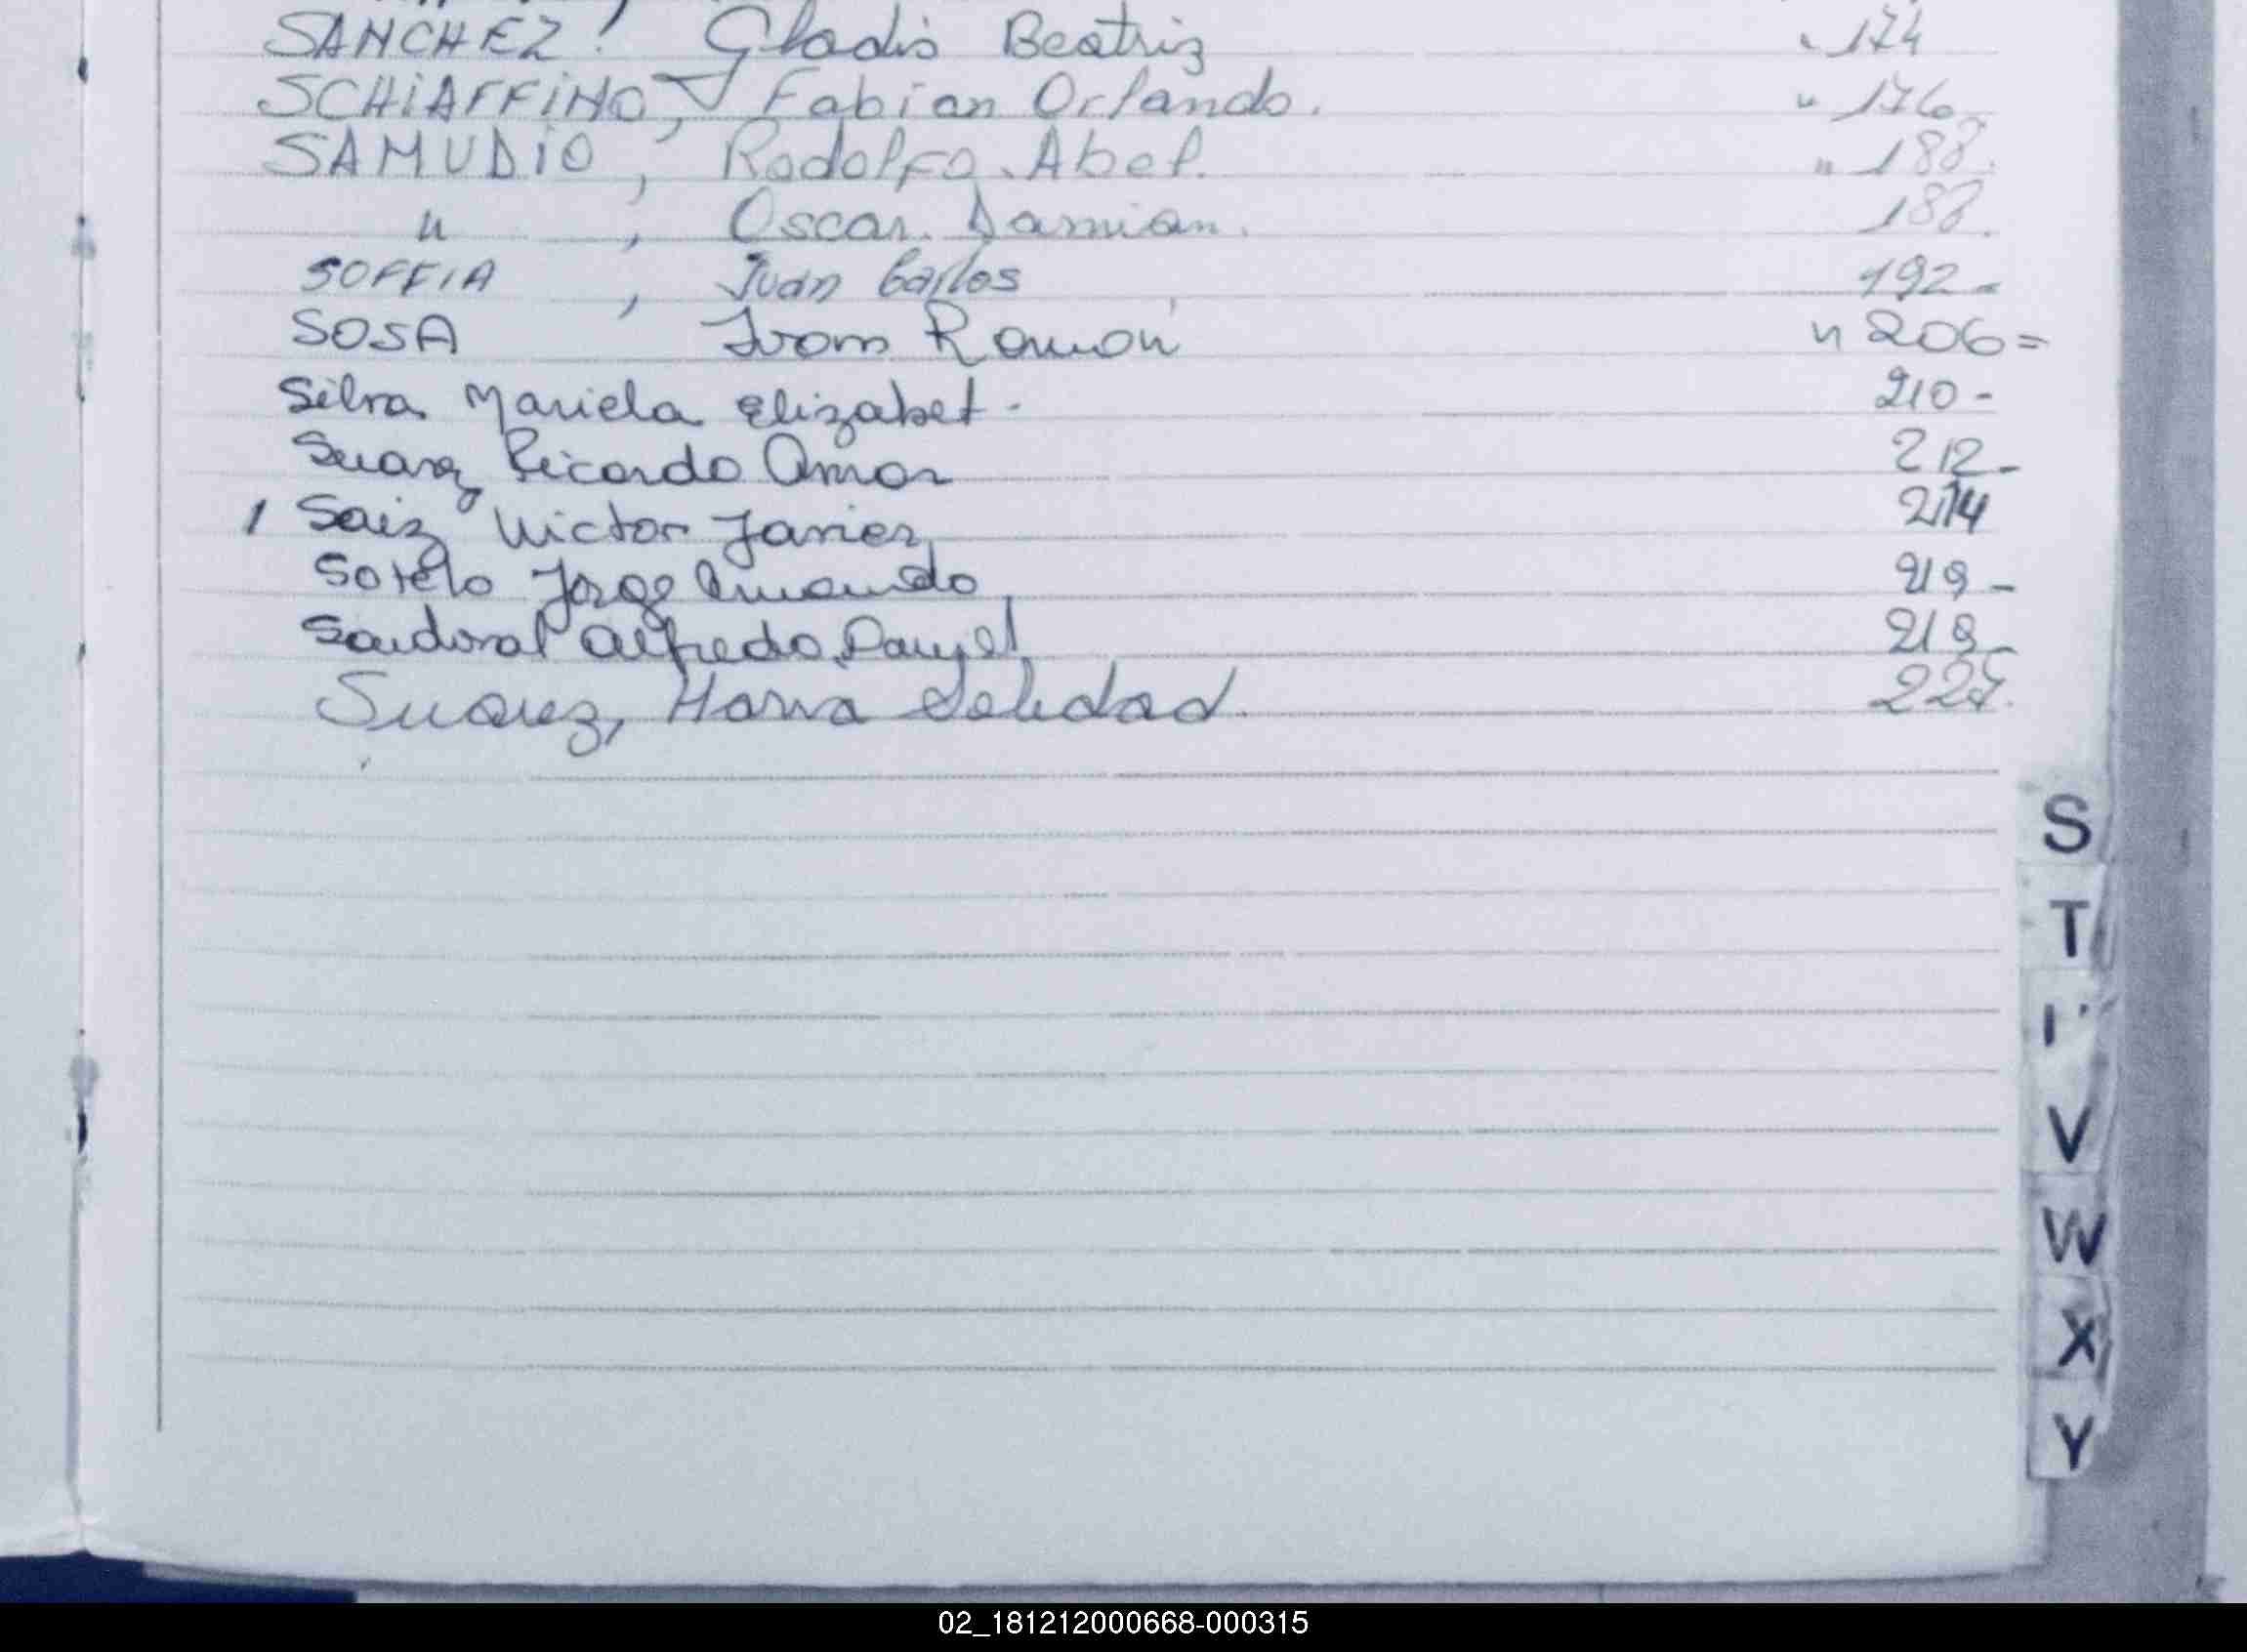 SANCHEZ! Gladis Beatriz " 174
SCHIAFFINO, Fabian Orlando. " 176
SAMUDIO, Rodolfo. Abel. " 188.
" , Oscar. Damian. 188.
SOFFIA , Juan Carlos 192-
SOSA Ivom Ramón " 206=
Silva Mariela Elizabet- 210-
Suarez Ricardo Omar 212-
1 Saiz Victor Javier 214
Sotelo Jorge Armando 219-
Sandoval Alfredo Daniel 219-
Suarez, Maria Soledad.
S
T
V
W
X
Y
02_181212000668-000315